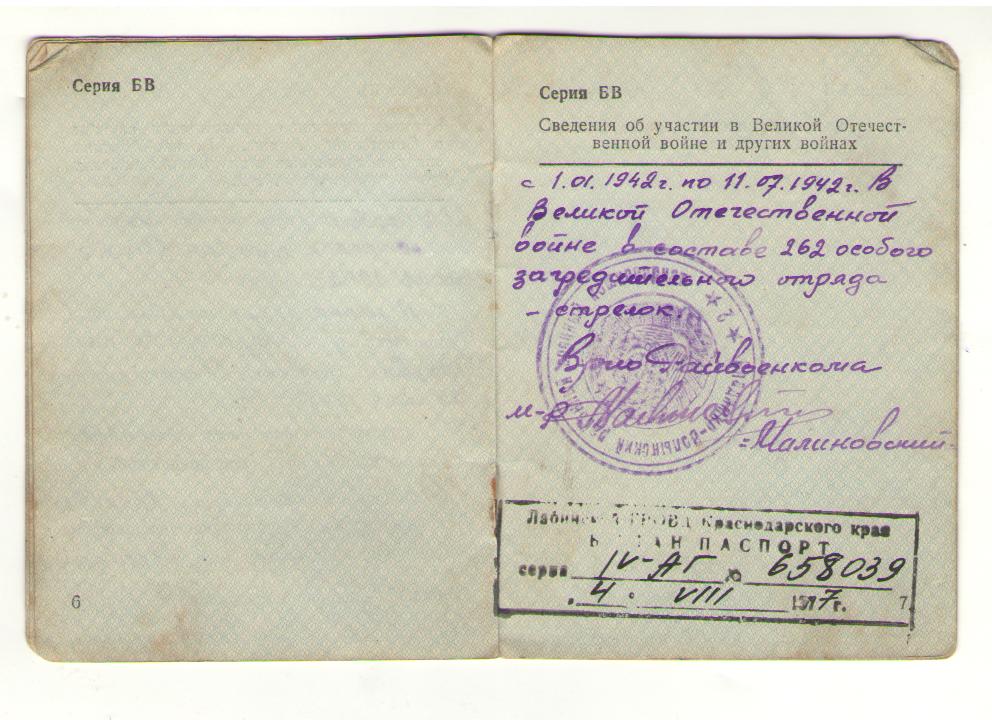 Серия БВ
6
Серия БВ
Сведения об участии в Великой Отечест-
венной войне и других войнах
с 1.01.1942г. по 11.07.1942г. В
Великой Отечественной
войне в составе 262 особого
заградительного отряда
- стрелок.
Врио Райвоенкома
м-р
=Малиновский-
ГРОВД Краснодарского края
ПАСПОРТ
серия IV-АГ № 658039
"4" VIII 1977г.
7